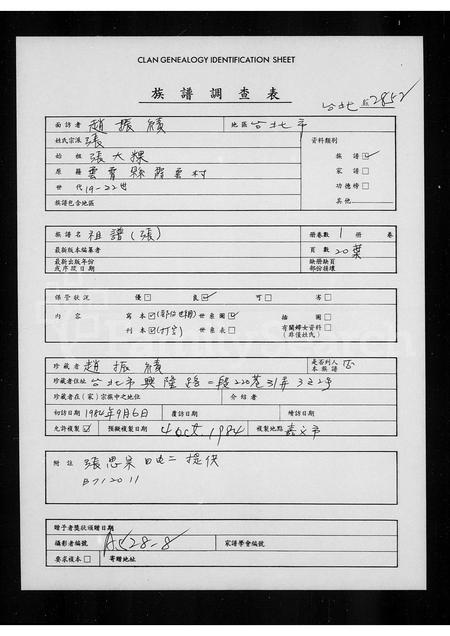 CLAN GENEALOGY IDENTIFICATION SHEET
族譜調查表
台北 2852
面訪者 趙振績 地區 台北市
姓氏宗派 張 資料類別
始祖 張大 族譜☑
原籍 雲霄縣霄雲村 家譜□
世代 19-22世 功德榜□
族譜包含地區 其他
族譜名 祖譜(張) 册卷數 1 册 卷
最新版本編纂者 頁數 20葉
最新出版年份 缺册缺頁
或序跋日期 部份損壞
保管狀況 優□ 良☑ 可□ 劣□
內容 寫本☑ 世系圖☑ 插圖□
刊本☑ 世系表□ 有關婦女資料□
(非僅姓氏)
珍藏者 趙振績 是否列入本族譜 否
珍藏者住址 台北市興隆路一段220巷31弄3之2号
珍藏者在(家)宗族中之地位 介紹者
初訪日期 1984年9月6日 覆訪日期 續訪日期
允許複製☑ 預擬複製日期 4 Oct. 1984 複製地點 嘉义市
附註 張思 提供
B712011
贈予者獎狀頒贈日期
攝影者編號 28-8 家譜學會編號
要求複本□ 寄贈地址
FamilySearch